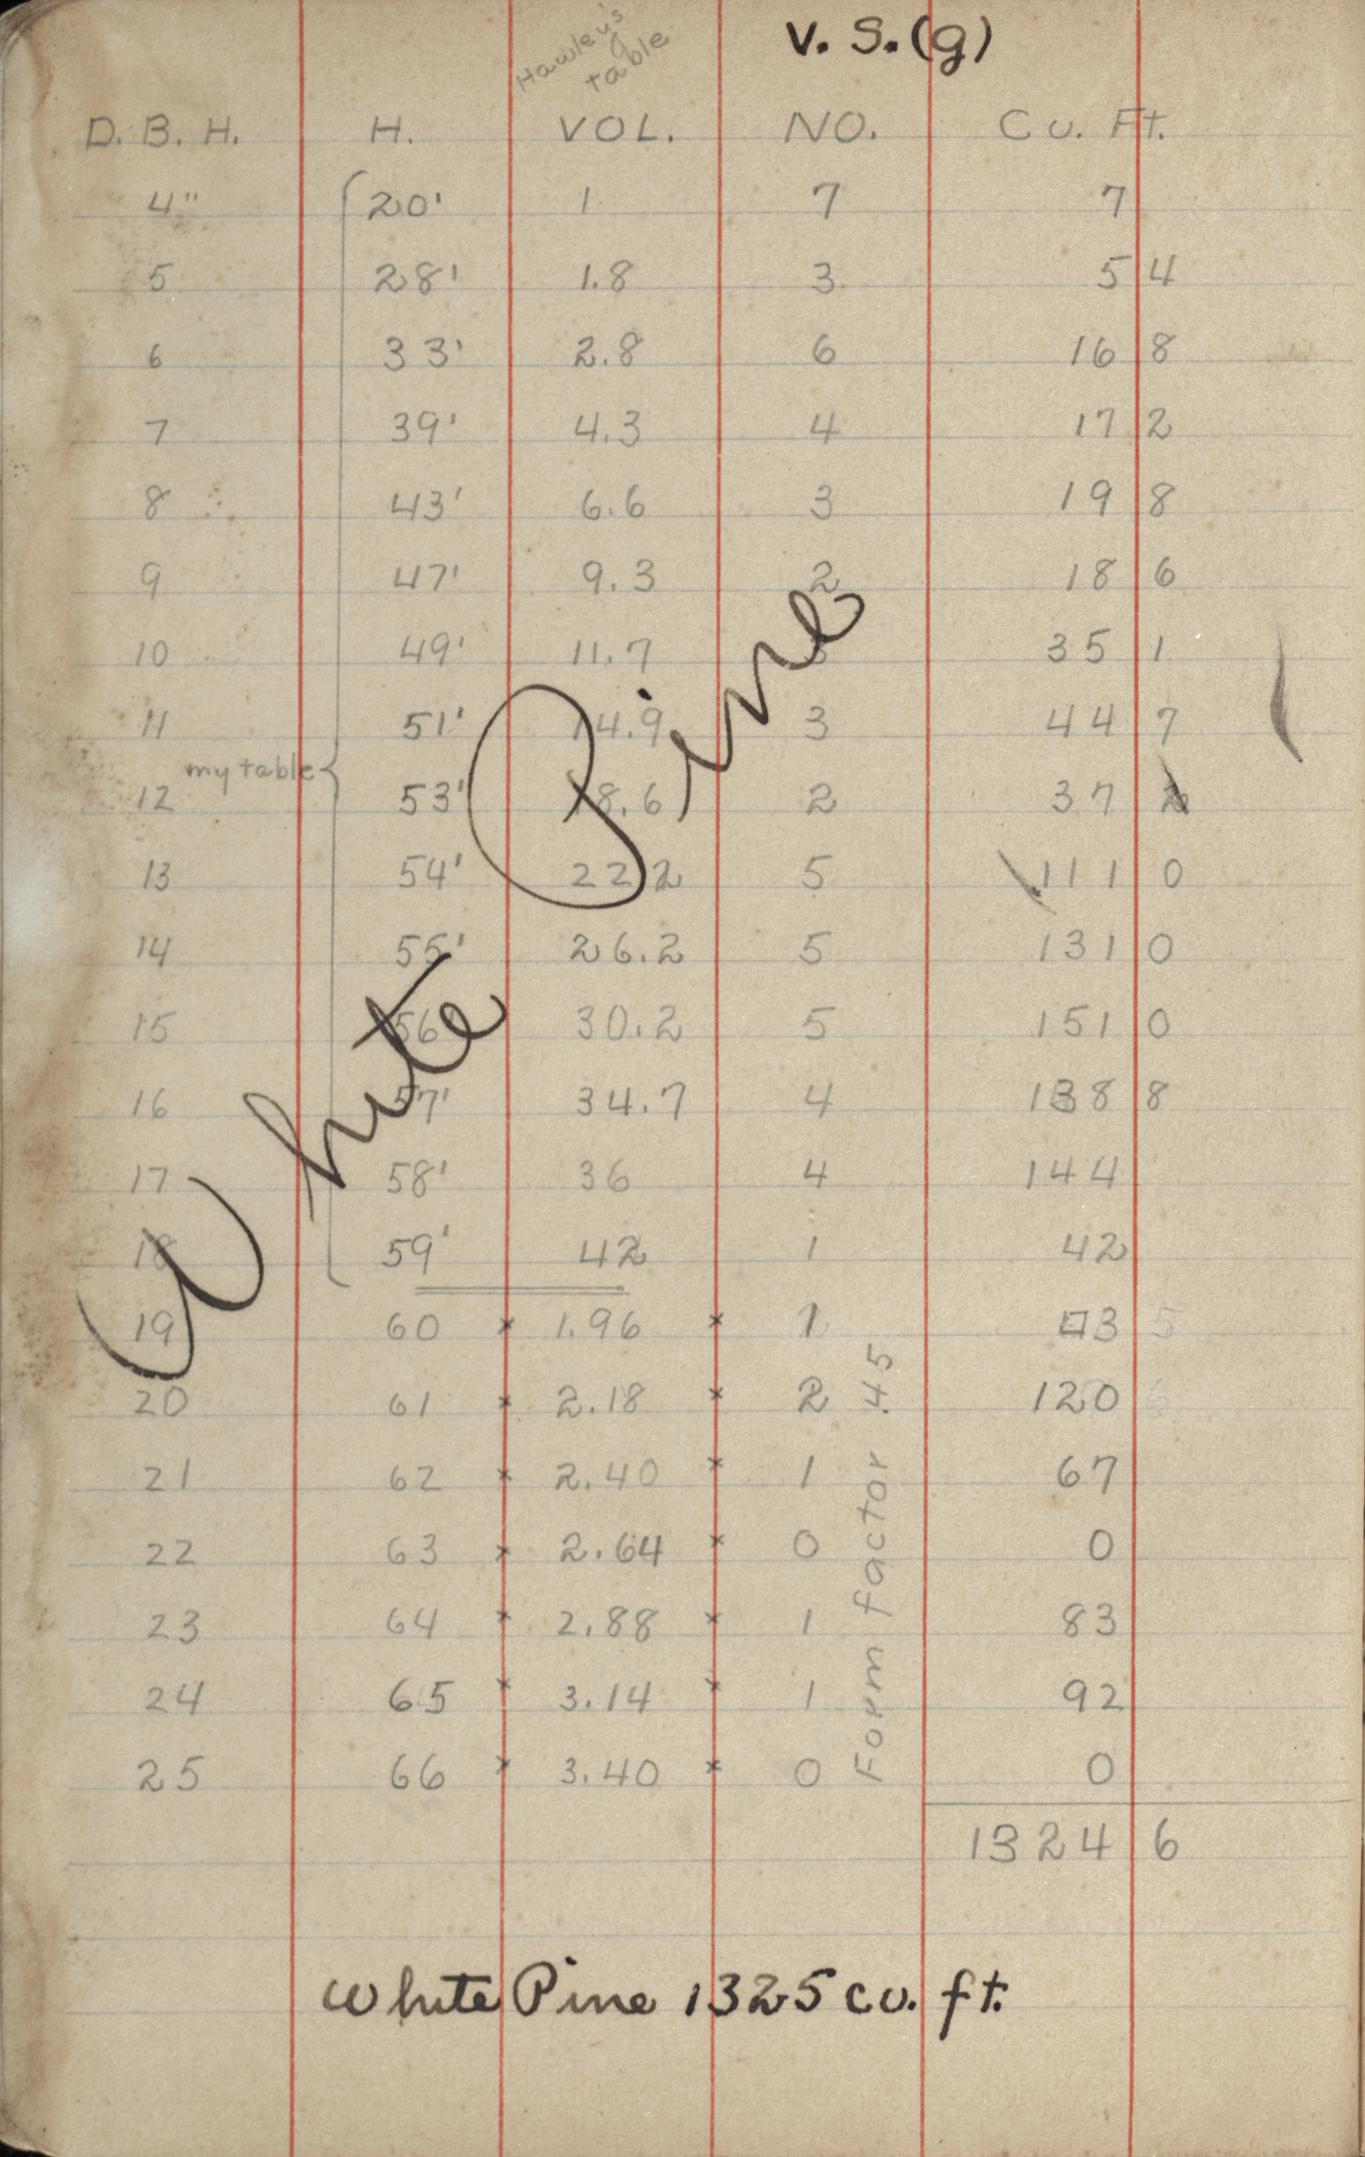 V. S. (g)
Hawley's
table
D. B. H. H. VOL. NO. Cu. Ft.
4" 20' 1 7 7
5 28' 1.8 3 5 4
6 33' 2.8 6 16 8
7 39' 4.3 4 17 2
8 43' 6.6 3 19 8
9 47' 9.3 2 18 6
10 49' 11.7 3 35 1
11 51' 14.9 3 44 7
my table
12 53' 18.6 2 37 2
13 54' 22.2 5 111 0
14 55' 26.2 5 131 0
15 56' 30.2 5 151 0
16 57' 34.7 4 138 8
17 58' 36 4 144
18 59' 42 1 42
19 60 × 1.96 × 1 3 5
20 61 × 2.18 × 2 120 6
21 62 × 2.40 × 1 67
22 63 × 2.64 × 0 0
23 64 × 2.88 × 1 83
24 65 × 3.14 × 1 92
25 66 × 3.40 × 0 0
Form factor .45
1324 6
White Pine
White Pine 1325 cu. ft.